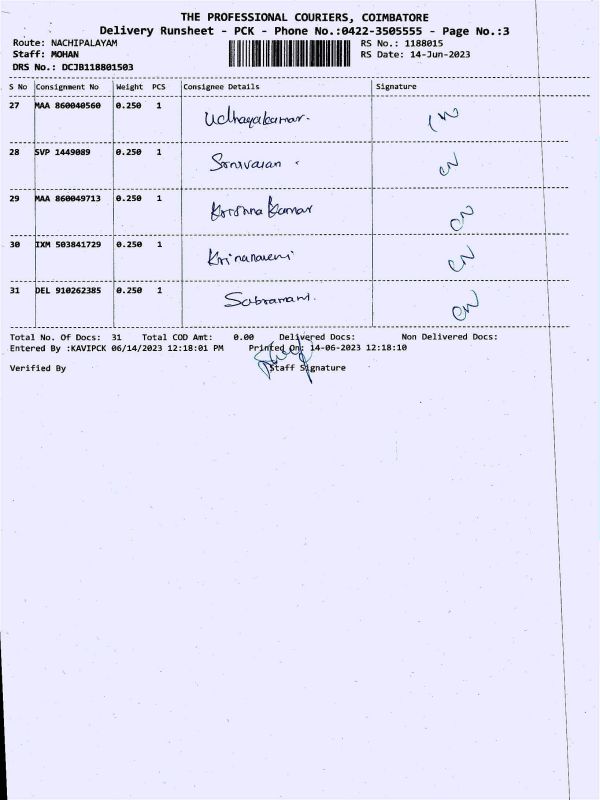 THE PROFESSIONAL COURIERS, COIMBATORE
Delivery Runsheet - PCK - Phone No.:0422-3505555 - Page No.:3
Route: NACHIPALAYAM RS No.: 1188015
Staff: MOHAN RS Date: 14-Jun-2023
DRS No.: DCJB118801503
S No Consignment No Weight PCS Consignee Details Signature
27 MAA 860040560 0.250 1 Udhayakumar.
28 SVP 1449089 0.250 1
29 MAA 860049713 0.250 1 Krishna Kumar
30 IXM 503841729 0.250 1
31 DEL 910262385 0.250 1 Subramani.
Total No. Of Docs: 31 Total COD Amt: 0.00 Delivered Docs: Non Delivered Docs:
Entered By :KAVIPCK 06/14/2023 12:18:01 PM Printed On: 14-06-2023 12:18:10
Verified By Staff Signature